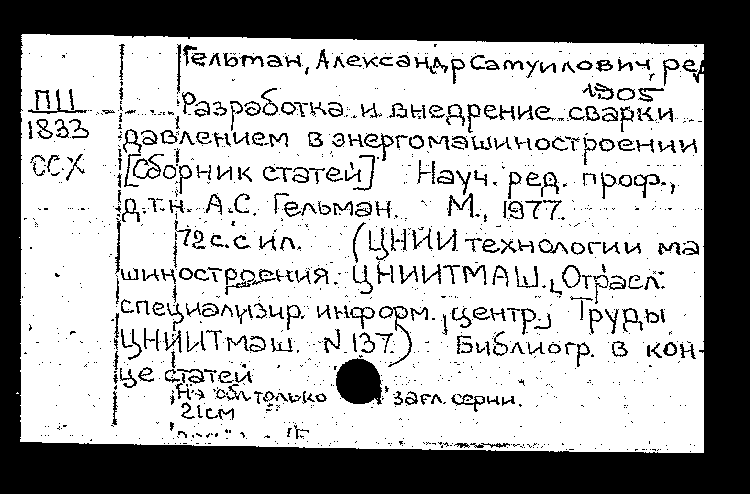 Гельман, Александр Самуилович, ред
1905
П11
1833
ССХ
Разработка и внедрение сварки
давлением в энергомашиностроении
[Сборник статей] Науч. ред. проф.,
д.т.н. А.С. Гельман. М., 1977.
72 с. с ил. (ЦНИИ технологии ма
шиностроения. ЦНИИТМАШ. Отрасл.
специализир. информ. центр. Труды
ЦНИИТмаш. N 137.) Библиогр. в кон-
це статей
На обл. только загл. серии.
21см